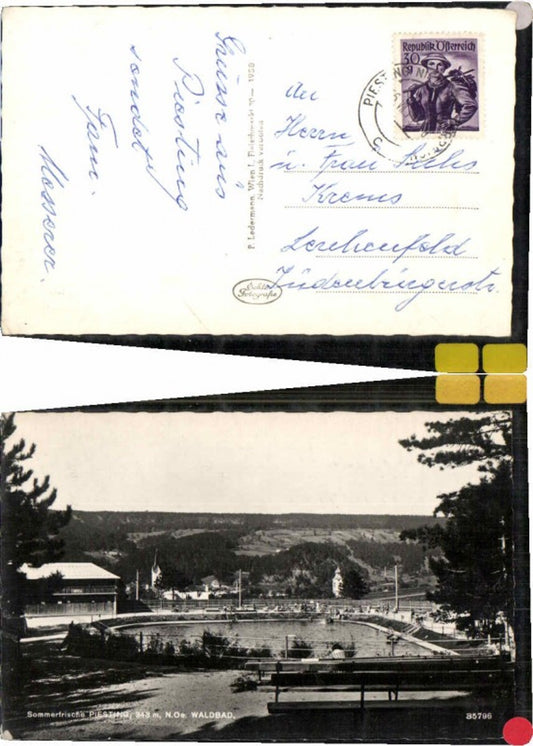 Grüsse aus
Piesting
sendet
Fam.
Mosserer.
P. Ledermann, Wien I., Fleischmarkt 10 — 1950
Nachdruck verboten
Echte
Fotografie
Republik Österreich
30
PIESTING
An
Herrn
u. Frau Sachs
Krems
Lerchenfeld
Sommerfrische PIESTING, 343 m, N.Oe. WALDBAD.
35796